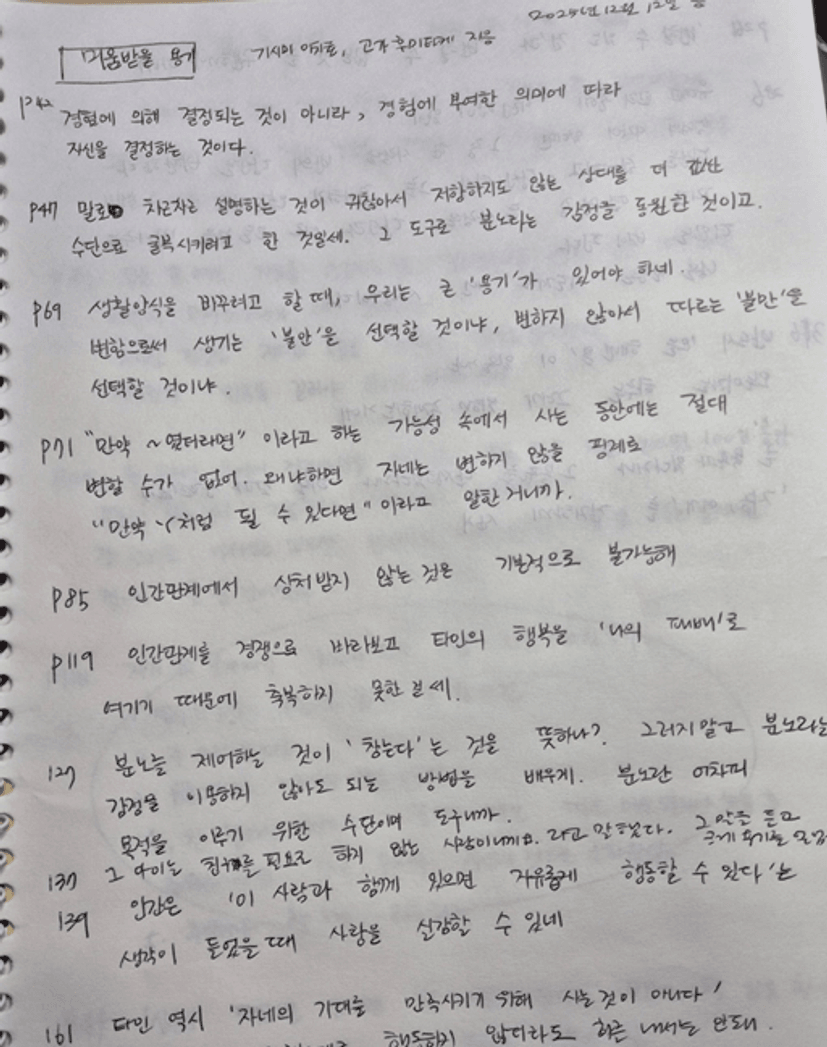 2025년 12월 12일 금
미움받을 용기 기시미 이치로, 고가 후미타케 지음
P42 경험에 의해 결정되는 것이 아니라, 경험에 부여한 의미에 따라
자신을 결정하는 것이다.
P47 말로 차근차근 설명하는 것이 귀찮아서 저항하지도 않는 상대를 더 값싼
수단으로 굴복시키려고 한 것일세. 그 도구로 분노라는 감정을 동원한 것이고.
P69 생활양식을 바꾸려고 할 때, 우리는 큰 '용기'가 있어야 하네.
변함으로써 생기는 '불안'을 선택할 것이냐, 변하지 않아서 따르는 '불만'을
선택할 것이냐.
P71 "만약 ~였더라면" 이라고 하는 가능성 속에서 사는 동안에는 절대
변할 수가 없어. 왜냐하면 자네는 변하지 않을 핑계로
"만약 Y처럼 될 수 있다면" 이라고 말한 거니까.
P85 인간관계에서 상처받지 않는 것은 기본적으로 불가능해
P119 인간관계를 경쟁으로 바라보고 타인의 행복을 '나의 패배'로
여기기 때문에 축복하지 못한 걸세.
127 분노를 제어하는 것이 '참는다'는 것을 뜻하나? 그러지말고 분노라는
감정을 이용하지 않아도 되는 방법을 배우게. 분노란 어차피
목적을 이루기 위한 수단이며 도구니까.
137 그 아이는 친구를 필요로 하지 않는 사람이니까요. 라고 말했다. 그 말을 듣고
크게 용기를
139 인간은 '이 사람과 함께 있으면 자유롭게 행동할 수 있다'는
생각이 들었을 때 사랑을 실감할 수 있네
161 타인 역시 '자네의 기대를 만족시키기 위해 사는 것이 아니다'
행동하지 않더라도 화를 내서는 안돼.